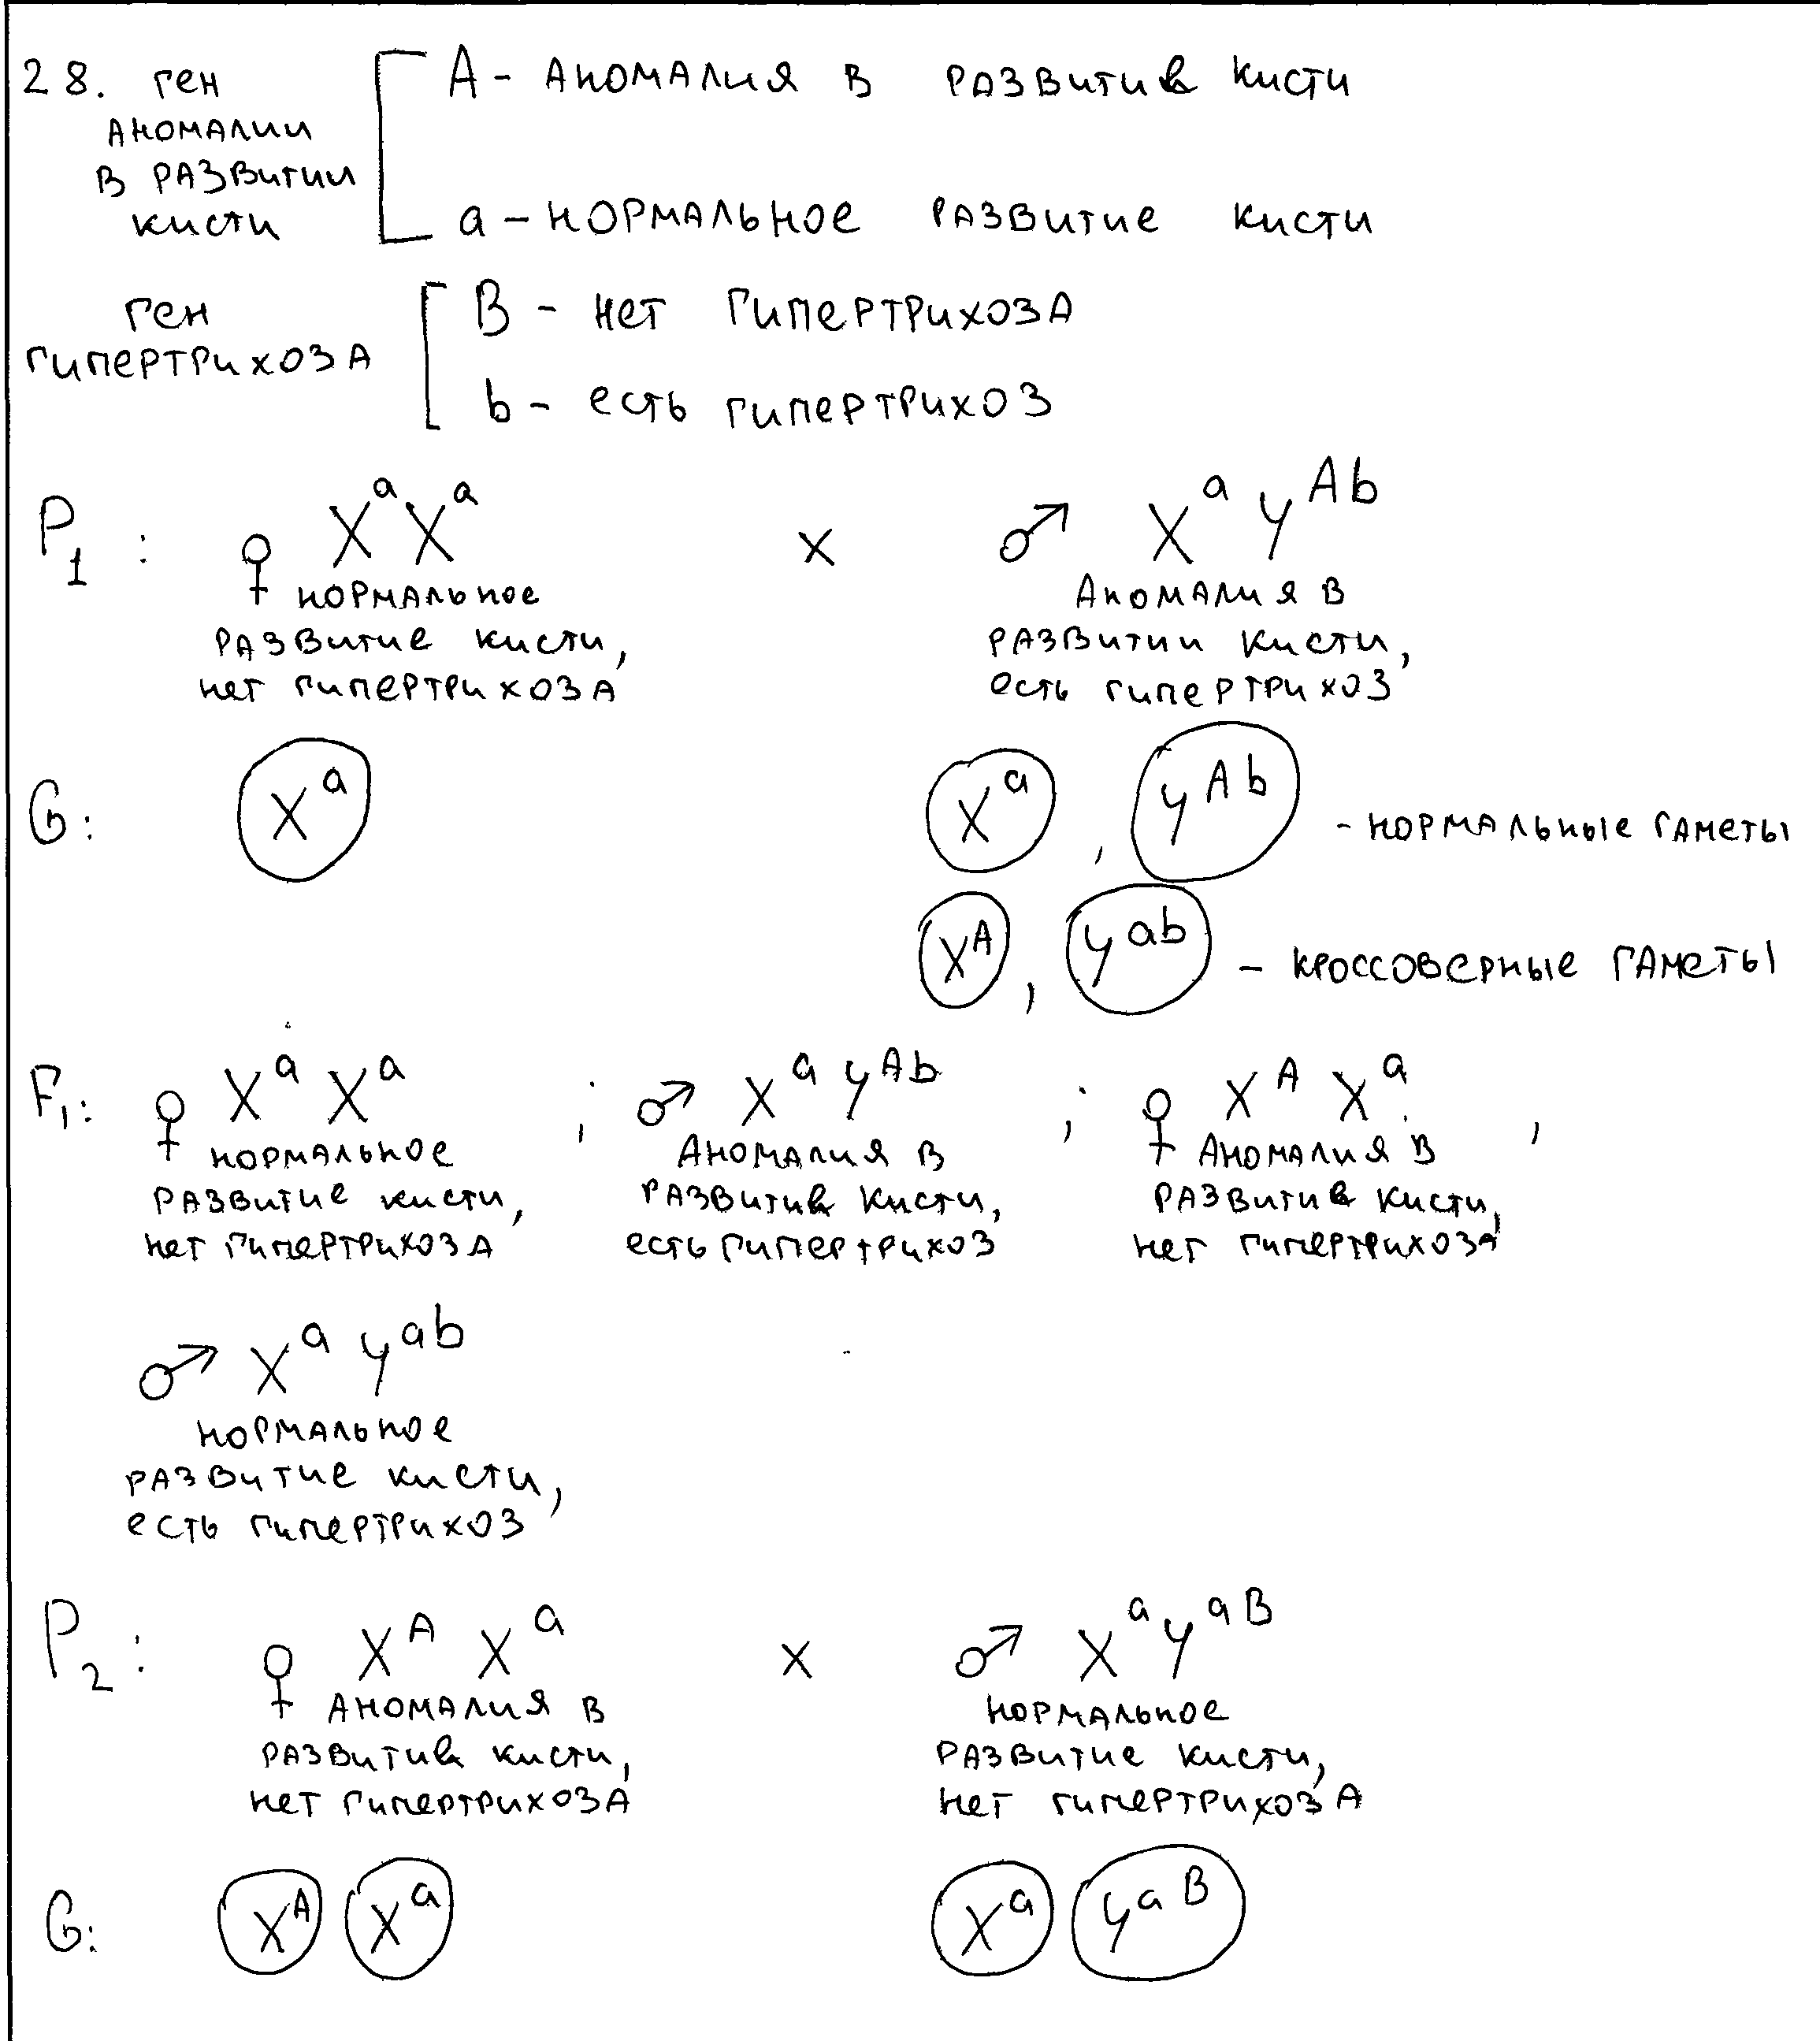 28. ген
аномалии
в развитии
кисти
A - аномалия в развитии кисти
a - нормальное развитие кисти
ген
гипертрихоза
B - нет гипертрихоза
b - есть гипертрихоз
P₁ : ♀ XᵃXᵃ x ♂ XᵃYᴬᵇ
нормальное развитие кисти, нет гипертрихоза
Аномалия в развитии кисти, есть гипертрихоз
G: Xᵃ Xᵃ, Yᴬᵇ - нормальные гаметы
Xᴬ, Yᵃᵇ - кроссоверные гаметы
F₁: ♀ XᵃXᵃ ; ♂ XᵃYᴬᵇ ; ♀ XᴬXᵃ ,
нормальное развитие кисти, нет гипертрихоза
Аномалия в развитии кисти, есть гипертрихоз
Аномалия в развитии кисти, нет гипертрихоза
♂ XᵃYᵃᵇ
нормальное
развитие кисти,
есть гипертрихоз
P₂ : ♀ XᴬXᵃ x ♂ XᵃYᵃᴮ
Аномалия в развитии кисти, нет гипертрихоза
нормальное развитие кисти, нет гипертрихоза
G: Xᴬ Xᵃ Xᵃ Yᵃᴮ